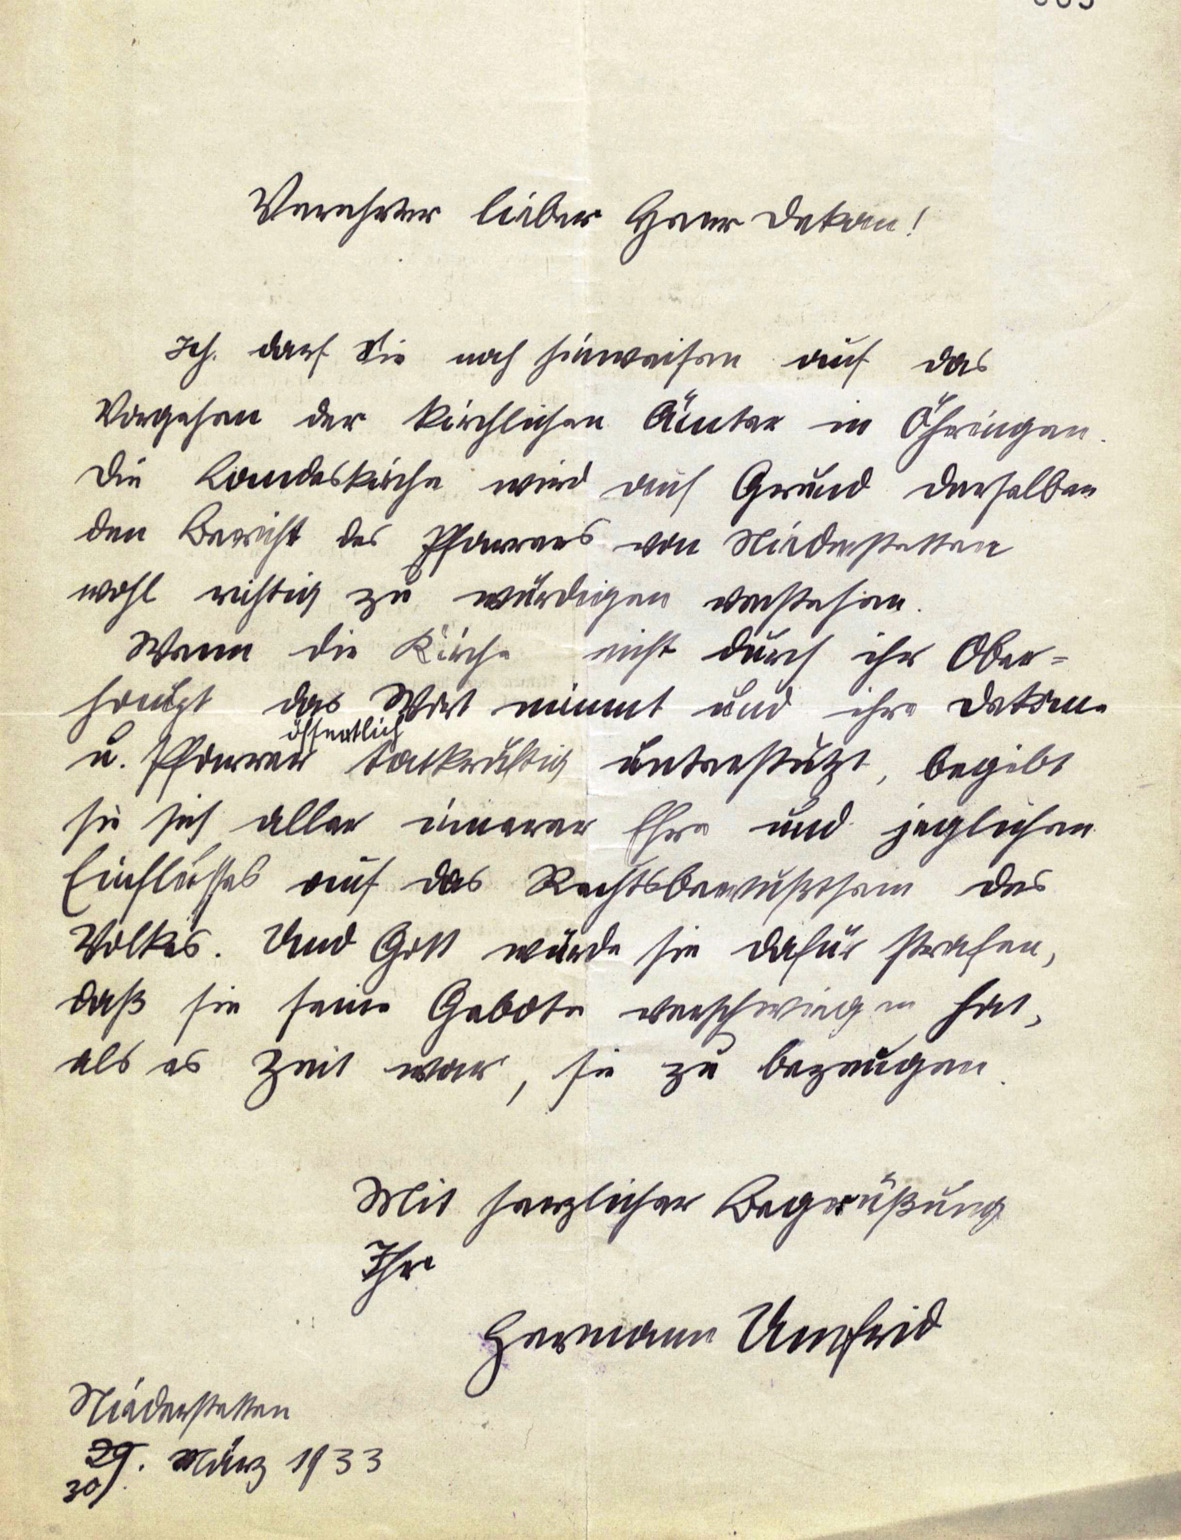 Verehrter lieber Herr Dekan!
Ich darf Sie noch hinweisen auf das
Vorgehen der kirchlichen Ämter in Öhringen.
Die Landeskirche wird auf Grund derselben
den Bericht des Pfarrers von Niederstetten
wohl richtig zu würdigen verstehen.
Wenn die Kirche nicht durch ihr Ober-
haupt das Wort nimmt und ihre Dekane
öffentlich
u. Pfarrer tatkräftig unterstützt, begibt
sie sich aller innerer Ehre und jeglichen
Einflusses auf das Rechtsbewußtsein des
Volkes. Und Gott würde sie dafür strafen,
daß sie seine Gebote verschwiegen hat,
als es Zeit war, sie zu bezeugen.
Mit herzlicher Begrüßung
Ihr
Hermann Umfrid
Niederstetten
29. März 1933
30